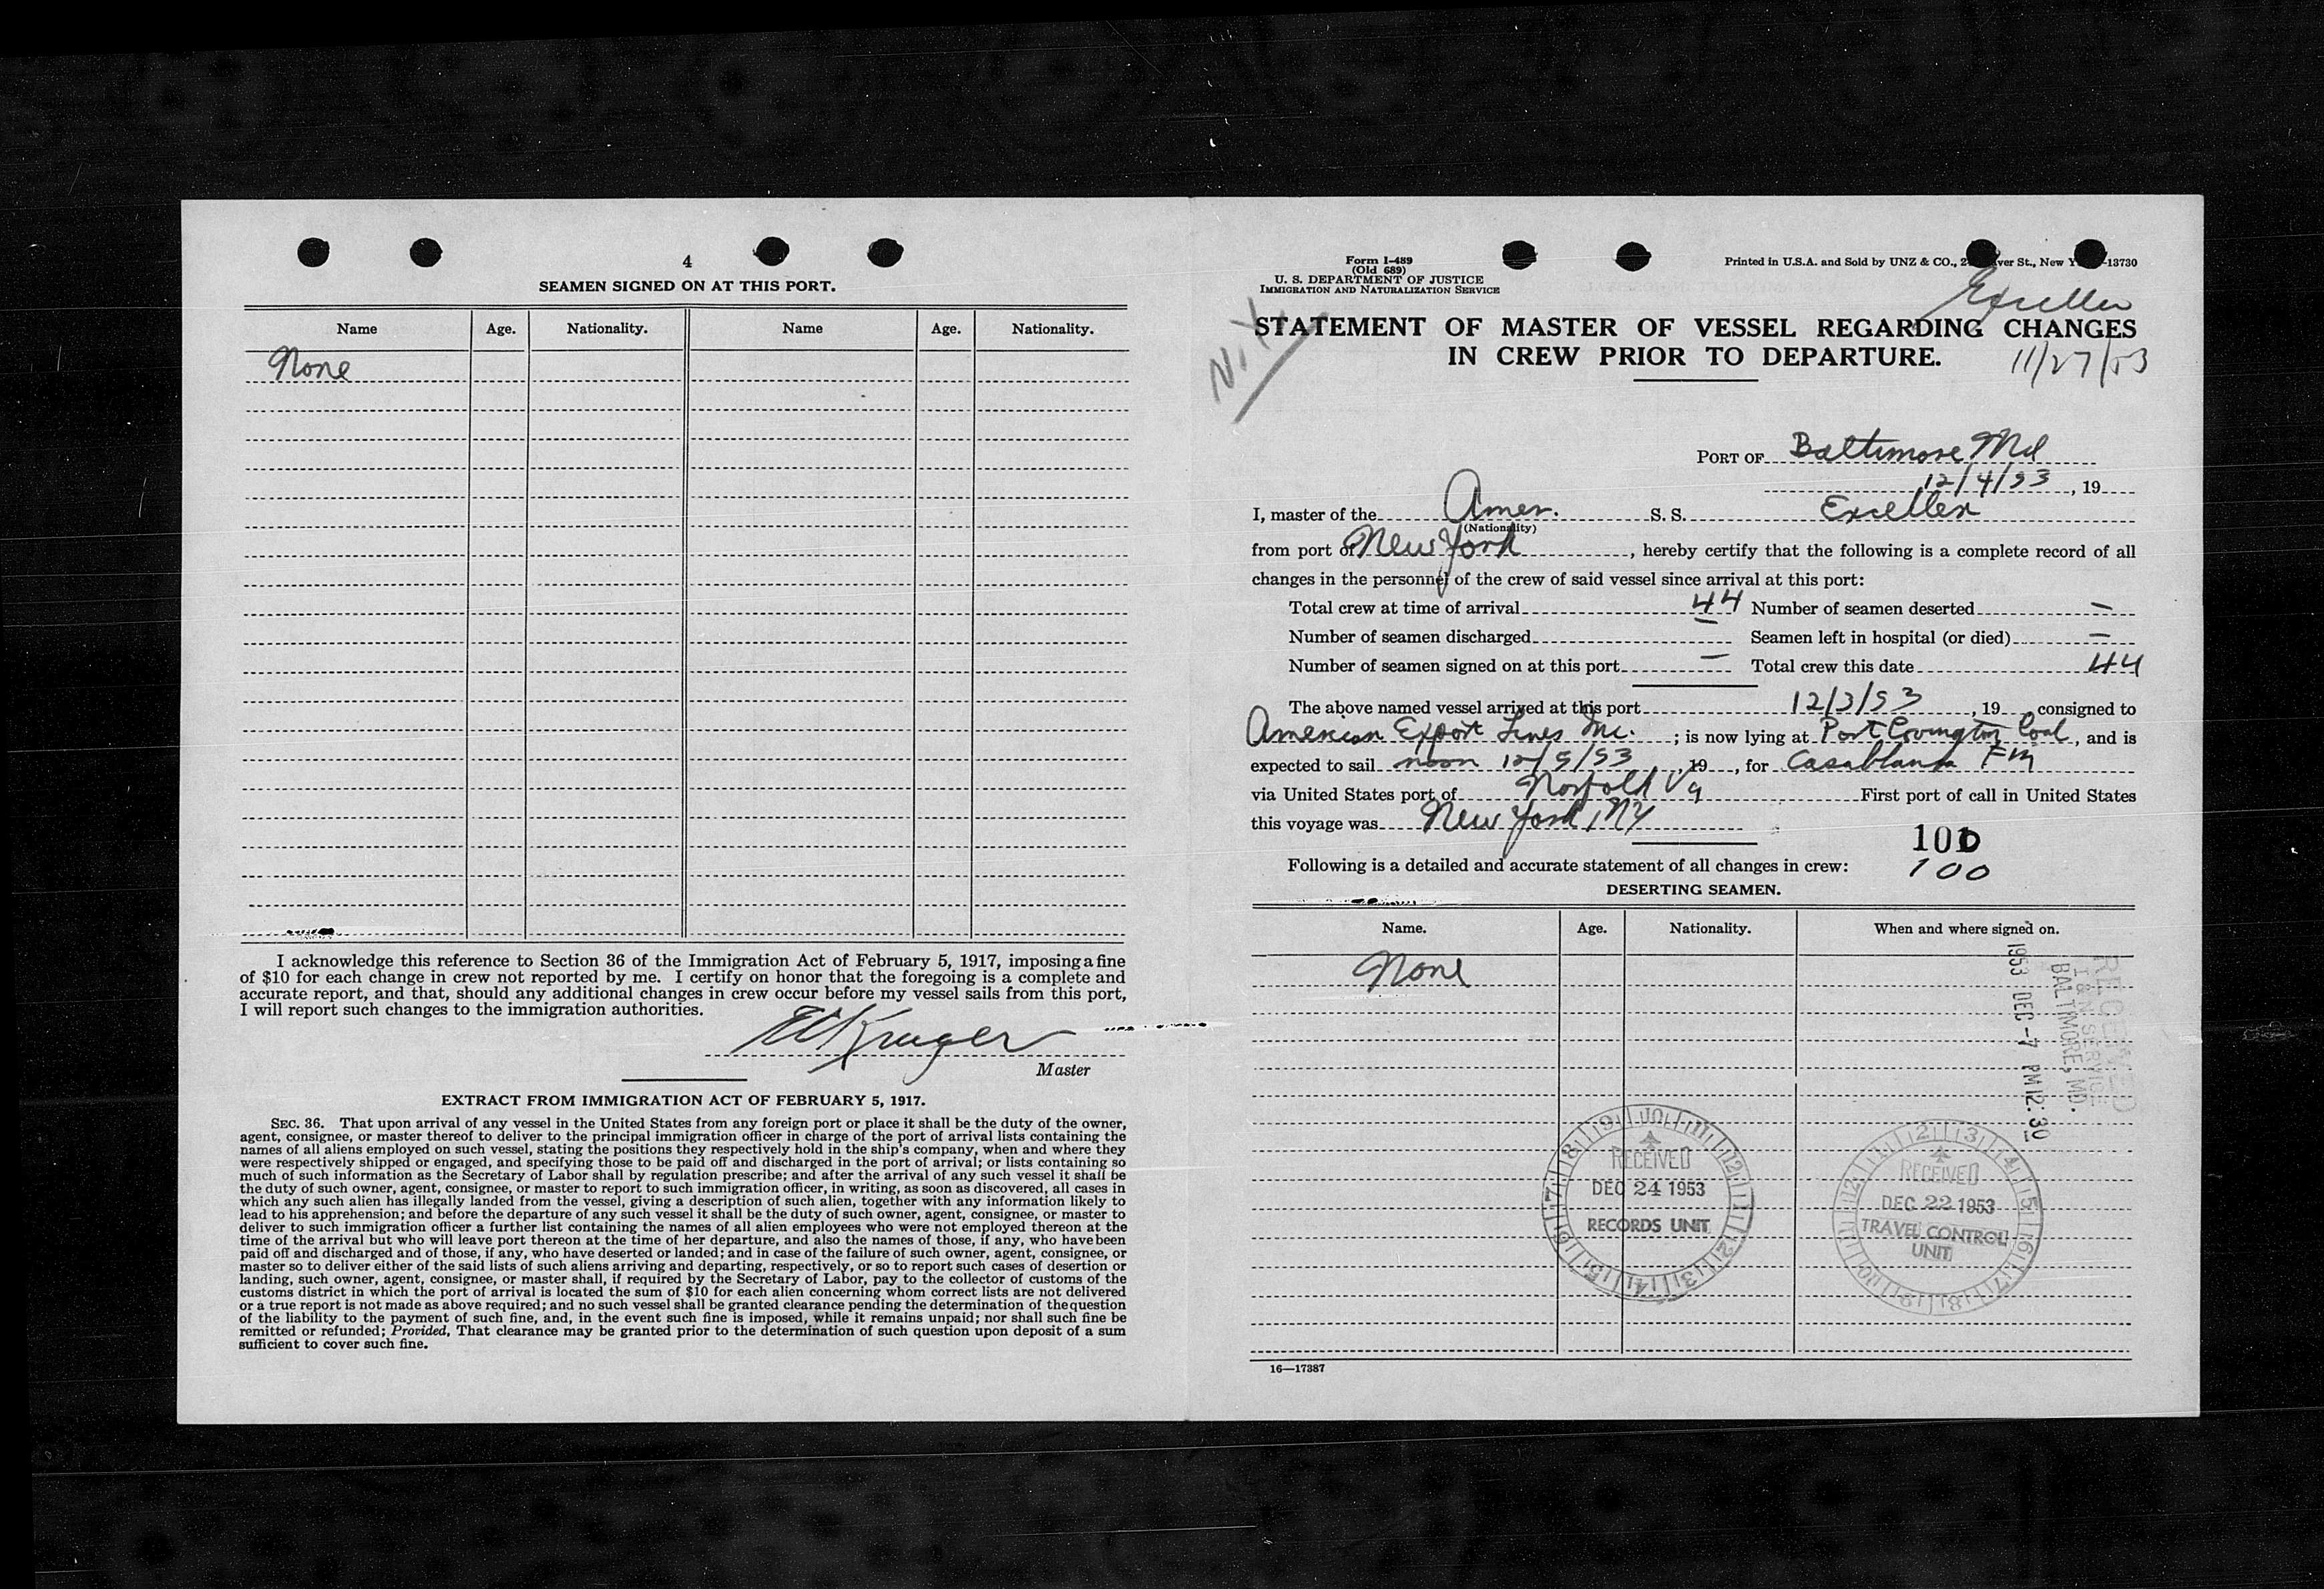 4
SEAMEN SIGNED ON AT THIS PORT.
Name Age. Nationality. Name Age. Nationality.
None
I acknowledge this reference to Section 36 of the Immigration Act of February 5, 1917, imposing a fine
of $10 for each change in crew not reported by me. I certify on honor that the foregoing is a complete and
accurate report, and that, should any additional changes in crew occur before my vessel sails from this port,
I will report such changes to the immigration authorities.
Kruger
Master
EXTRACT FROM IMMIGRATION ACT OF FEBRUARY 5, 1917.
SEC. 36. That upon arrival of any vessel in the United States from any foreign port or place it shall be the duty of the owner,
agent, consignee, or master thereof to deliver to the principal immigration officer in charge of the port of arrival lists containing the
names of all aliens employed on such vessel, stating the positions they respectively hold in the ship's company, when and where they
were respectively shipped or engaged, and specifying those to be paid off and discharged in the port of arrival; or lists containing so
much of such information as the Secretary of Labor shall by regulation prescribe; and after the arrival of any such vessel it shall be
the duty of such owner, agent, consignee, or master to report to such immigration officer, in writing, as soon as discovered, all cases in
which any such alien has illegally landed from the vessel, giving a description of such alien, together with any information likely to
lead to his apprehension; and before the departure of any such vessel it shall be the duty of such owner, agent, consignee, or master to
deliver to such immigration officer a further list containing the names of all alien employees who were not employed thereon at the
time of the arrival but who will leave port thereon at the time of her departure, and also the names of those, if any, who have been
paid off and discharged and of those, if any, who have deserted or landed; and in case of the failure of such owner, agent, consignee, or
master so to deliver either of the said lists of such aliens arriving and departing, respectively, or so to report such cases of desertion or
landing, such owner, agent, consignee, or master shall, if required by the Secretary of Labor, pay to the collector of customs of the
customs district in which the port of arrival is located the sum of $10 for each alien concerning whom correct lists are not delivered
or a true report is not made as above required; and no such vessel shall be granted clearance pending the determination of the question
of the liability to the payment of such fine, and, in the event such fine is imposed, while it remains unpaid; nor shall such fine be
remitted or refunded; Provided, That clearance may be granted prior to the determination of such question upon deposit of a sum
sufficient to cover such fine.
Form I-489
(Old 689)
U. S. DEPARTMENT OF JUSTICE
IMMIGRATION AND NATURALIZATION SERVICE
Printed in U.S.A. and Sold by UNZ & CO., 2 ver St., New Y -13730
Exceller
N.Y.
STATEMENT OF MASTER OF VESSEL REGARDING CHANGES
IN CREW PRIOR TO DEPARTURE.
11/27/53
PORT OF Baltimore Md
12/4/53, 19
I, master of the Amer. S. S. Exceller
(Nationality)
from port of New York, hereby certify that the following is a complete record of all
changes in the personnel of the crew of said vessel since arrival at this port:
Total crew at time of arrival 44 Number of seamen deserted —
Number of seamen discharged — Seamen left in hospital (or died) —
Number of seamen signed on at this port — Total crew this date 44
The above named vessel arrived at this port 12/3/53, 19 consigned to
American Export Lines Inc. ; is now lying at Port Covington Coal, and is
expected to sail noon 12/5/53, 19, for Casablanca FM
via United States port of Norfolk Va First port of call in United States
this voyage was New York, NY
100
Following is a detailed and accurate statement of all changes in crew: 100
DESERTING SEAMEN.
Name. Age. Nationality. When and where signed on.
None
RECEIVED
I & N SERVICE
BALTIMORE, MD.
1953 DEC -7 PM 12:30
RECEIVED
DEC 24 1953
RECORDS UNIT
RECEIVED
DEC 22 1953
TRAVEL CONTROL
UNIT
16—17387